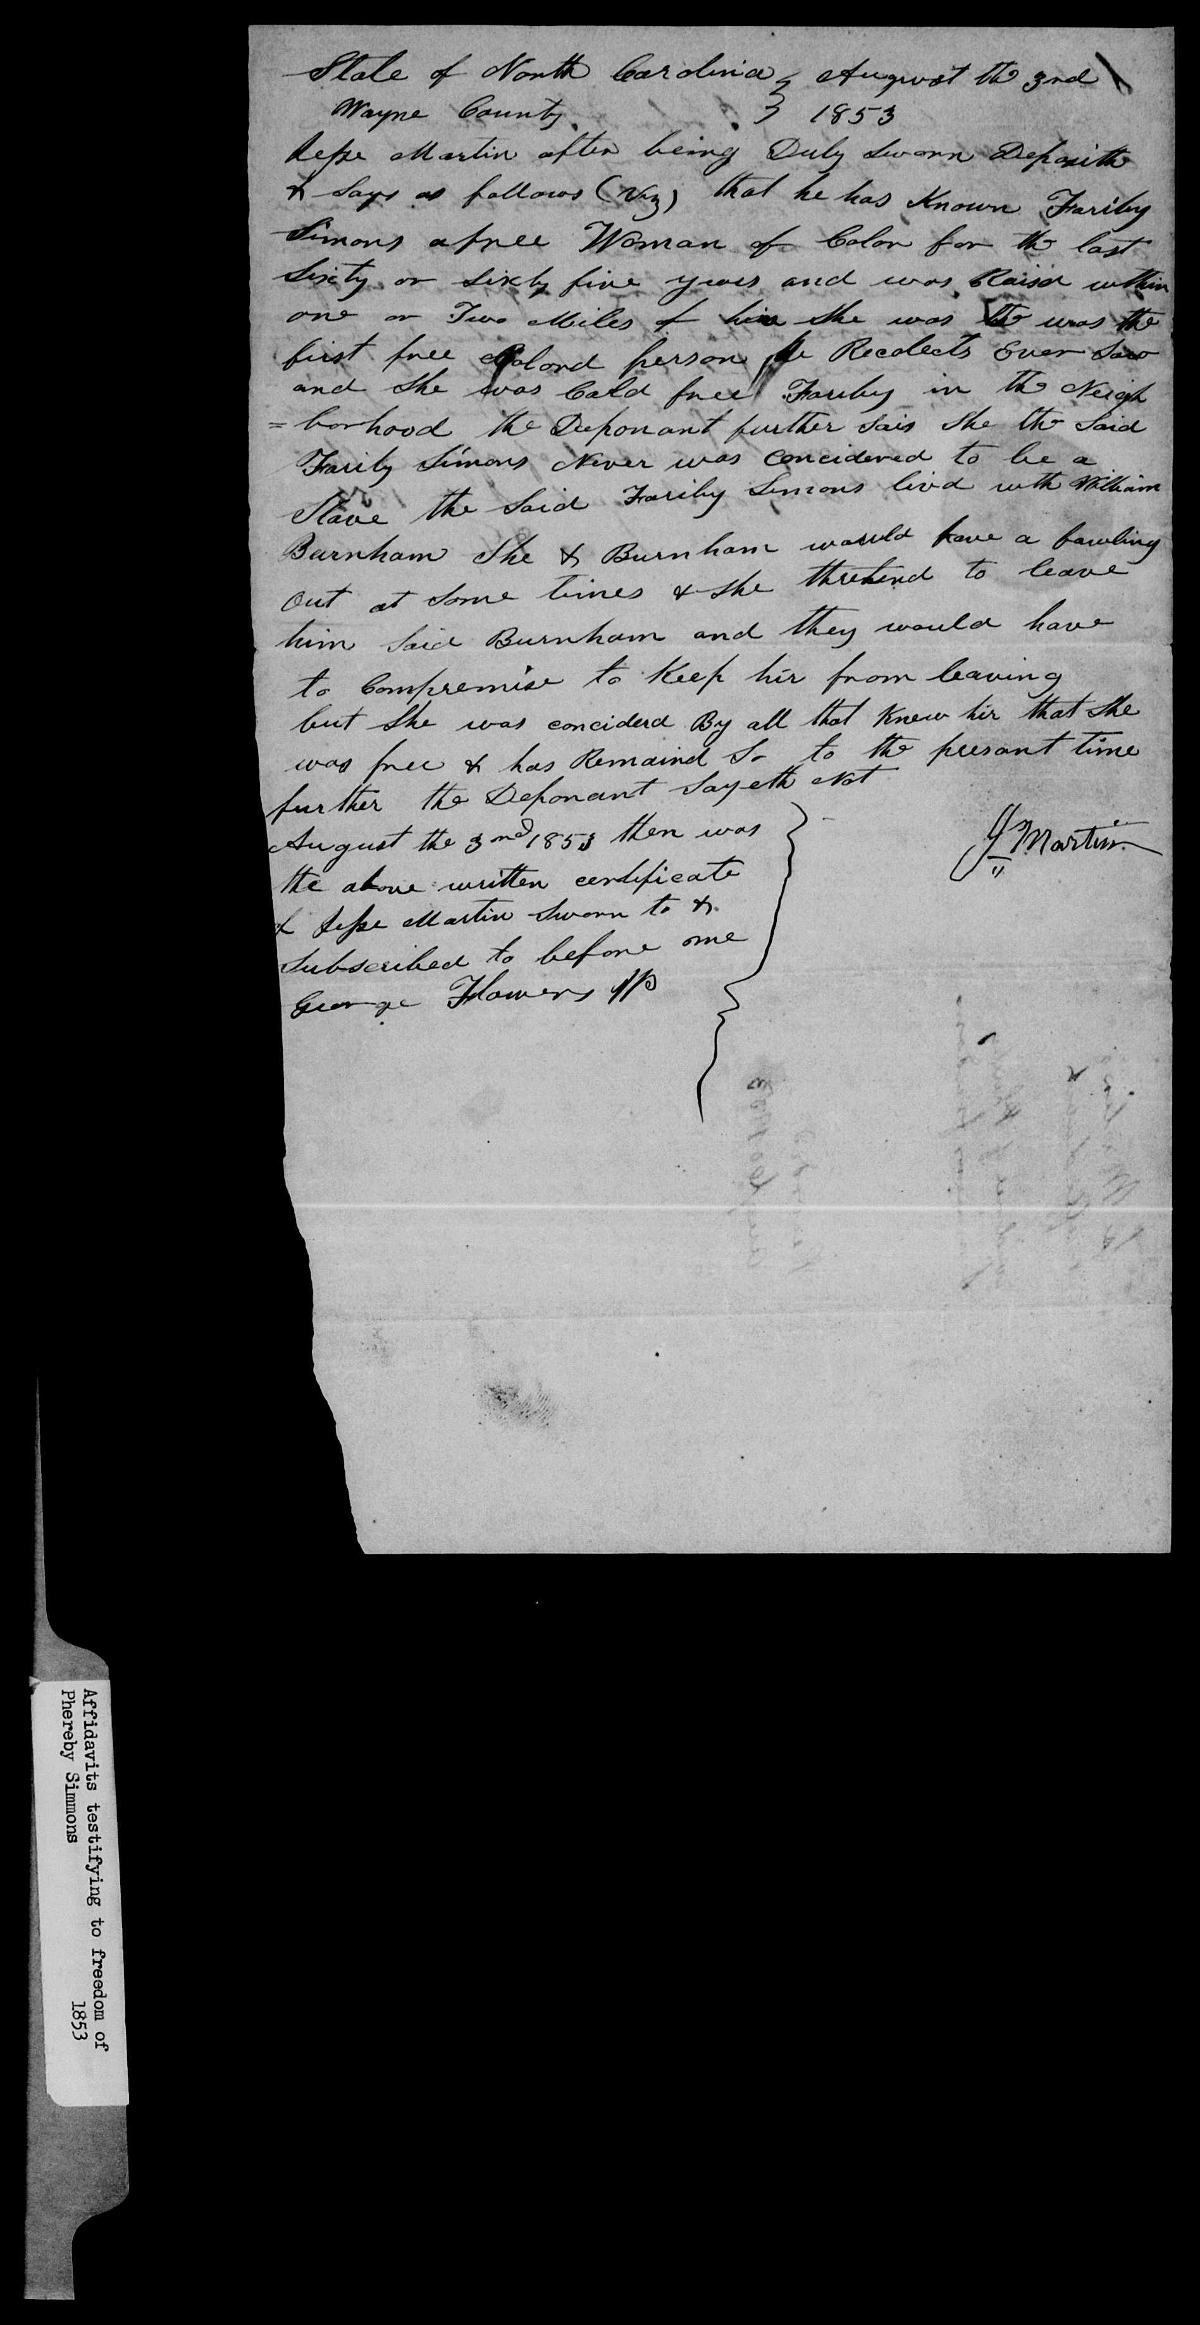 State of North Carolina } August the 3rd
Wayne County } 1853
Jesse Martin after being Duly Sworn Deposith
& Says as follows (Viz) that he has Known Fariby
Simons a free Woman of Color for the last
Sixty or sixty five years and was Raisd within
one or Two Miles of him She was the was the
first free Colord person he Recolects Ever Saw
and She was Cald free Fariby in the Neigh
=borhood the Deponant further Sais She the Said
Fariby Simons Never was concidered to be a
Slave the Said Fariby Simons livd with William
Burnham She & Burnham would have a fawling
out at Some times & she thretend to leave
him Said Burnham and they would have
to Compremise to Keep hir from leaving
but She was conciderd By all that Knew hir that She
was free & has Remaind So to the presant time
further the Deponant Sayeth Not
J Martin
August the 3nd 1853 then was
the above written certificate
of Jesse Martin Sworn to &
Subscribed to before me
George Flowers JP
Affidavits testifying to freedom of
Phereby Simmons 1853